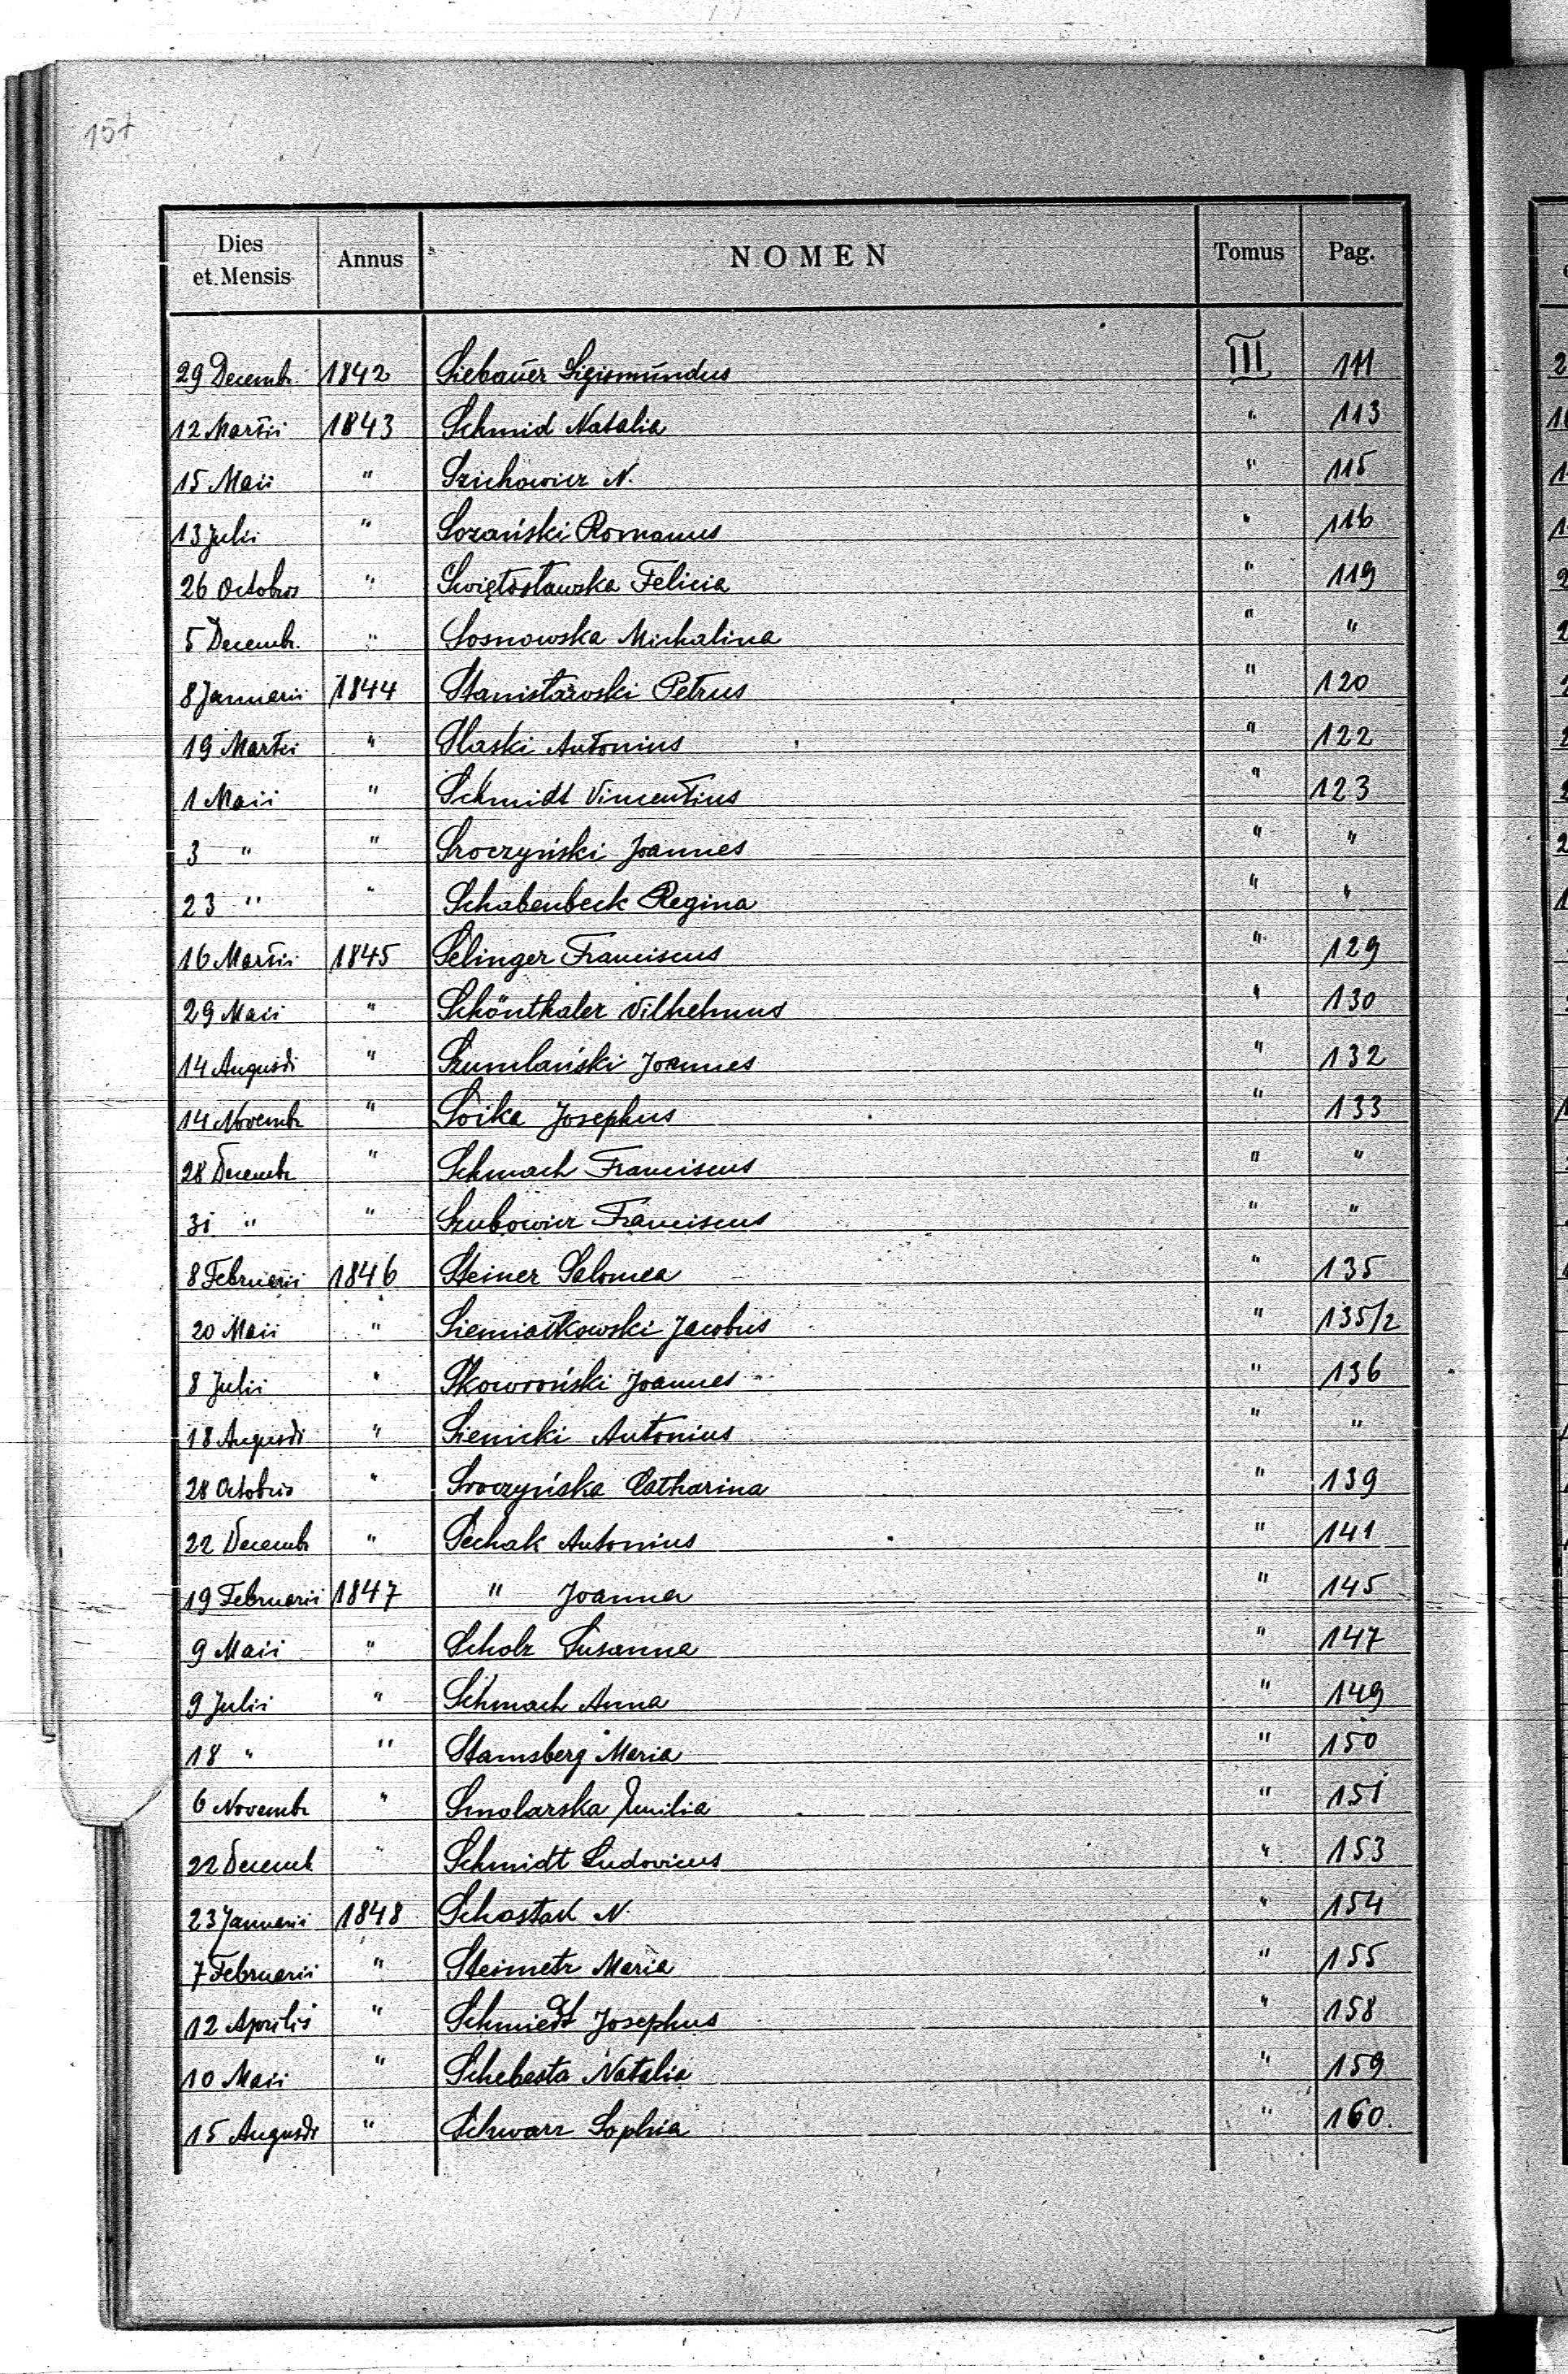 157
Dies et Mensis Annus NOMEN Tomus Pag.
29 Decembr. 1842 Siebauer Sigismundus III 111
12 Martii 1843 Schmid Natalia " 113
15 Maii " Szichowicz N. " 115
13 Julii " Sozański Romanus " 116
26 Octobris " Swiętosławska Felicia " 119
5 Decembr. " Sosnowska Michalina " "
8 Januarii 1844 Stanisławski Petrus " 120
19 Martii " Slaski Antonius " 122
1 Maii " Schmidt Vincentius " 123
3 " " Sroczyński Joannes " "
23 " " Schabenbeck Regina " "
16 Martii 1845 Selinger Franciscus " 129
29 Maii " Schönthaler Vilhelmus " 130
14 Augusti " Szumlański Joannes " 132
14 Novembr " Soika Josephus " 133
28 Decembr " Schmach Franciscus " "
31 " " Szubowicz Franciscus " "
8 Februarii 1846 Steiner Salomea " 135
20 Maii " Siemiatkowski Jacobus " 135/2
8 Julii " Skowroński Joannes " 136
18 Augusti " Sienicki Antonius " "
28 Octobris " Sroczyńska Catharina " 139
22 Decembr " Sechak Antonius " 141
19 Februarii 1847 " Joanna " 145
9 Maii " Scholz Susanna " 147
9 Julii " Schmach Anna " 149
18 " " Stamsberg Maria " 150
6 Novembr " Smolarska Aemilia " 151
22 Decemb " Schmidt Ludovicus " 153
23 Januarii 1848 Schostak N " 154
7 Februarii " Steimetz Maria " 155
12 Aprilis " Schmiedt Josephus " 158
10 Maii " Schebesta Natalia " 159
15 Augusti " Schwarz Sophia " 160